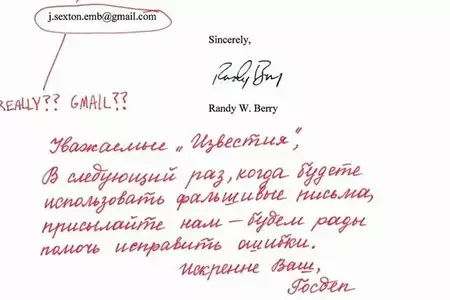 j.sexton.emb@gmail.com
Sincerely,
Randy W. Berry
REALLY?? GMAIL??
Уважаемые „Известия",
В следующий раз, когда будете
использовать фальшивые письма,
присылайте нам – будем рады
помочь исправить ошибки.
Искренне Ваш,
Госдеп